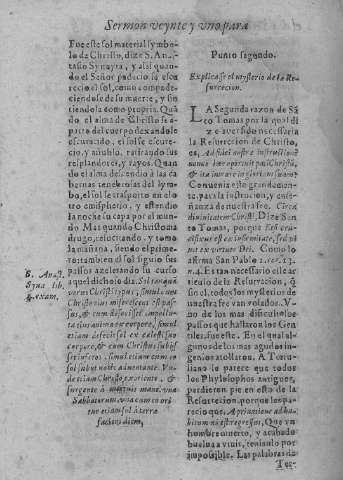 Sermon veynte y vno para
Fue este sol material symbo-
lo de Christo, dize S. Anas-
tasio Synayta, y assi quan-
do el Señor padecio se escu-
recio el sol, como compade-
ciendose de su muerte, y sin-
tiendola como propia. Quã-
do el alma de Christo se a-
parto del cuerpo dexandole
escurado, el sol se escure-
cio, y añublo, retirando sus
resplandores, y rayos. Quan-
do el alma descendio a las ca-
bernas tenebrosas del lym-
bo, el sol se traspuso en el o-
tro emispherio, y estendio
la noche su capa por el mun-
do. Mas quando Christo ma-
drugo, resucitando, y tomo
la mañana, siendo el prime-
ro: tambien el sol siguio sus
passos azelerando su curso
aquel dichoso dia. Sol tanquã
S. Anast.
Syna. lib.
7. exam.
verus Christi typus, simul cum
Christo eius miserescens est pas-
sus, & cum defecisset
anima in corpore, simul
etiam defecit sol ex caelestibus
corpore, & cum Christus subijs-
set inferos: simul etiam cum eo
sol subijt nocte adventante. Vn-
de etiam Christo exoriente, &
surgente à mortuis mane, vna
Sabbatorum vna cum eo ori-
tur etiam sol à terra
faciens diem,
Punto segundo.
Explicase el mysterio de la Re-
surrecion.
LA Segunda razon de Sã-
to Tomas por la qual di-
ze aver sido necessaria
la Resurrecion de Christo,
es, Ad fidei nostræ instructionẽ
nonne hæc oportuit pati Christũ,
& ita intrare in gloriam suam?
Convenia esto grandemen-
te, para la instrucion, y ense-
ñança de nuestra fe. Circa
divinitatem Christi, Dize San
to Tomas, porque Etsi cru-
cifixus est ex infirmitate, sed vi
vit ex virtute Dei. Como lo
afirma San Pablo 2. cor. 13.
n. 4. Es tan necessario este ar-
ticulo de la Resurrecion, q̃
sin el, todos los mysterios de
nuestra fe van volados. V-
no de los mas dificultosos
passos que hallaron los Gen
tiles, fue este. En el qual al-
gunos de los mas agudos in-
genios atollaron. A Tertu-
liano le parece que todos
los Phylosophos antigues,
perdieron pie en esto de la
Resurrecion, porque les pa-
recio que, A privatione ad ha-
bitum nõ est regressus, Que vn
hombre muerto, y acabado
buelua a viuir, tenianlo por
impossible. Las palabras de
Ter-